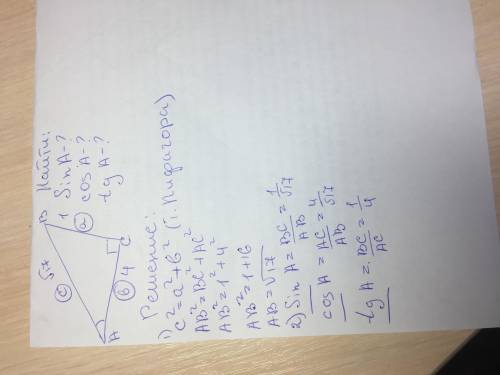 Найти:
Sin A - ?
cos A - ?
tg A - ?
B
1
a
√17
c
C
b
4
A
Решение:
1) c²=a²+b² (т. Пифигора)
AB²=BC²+AC²
AB²=1²+4²
AB²=1+16
AB=√17
2) Sin A = BC/AB = 1/√17
cos A = AC/AB = 4/√17
tg A = BC/AC = 1/4